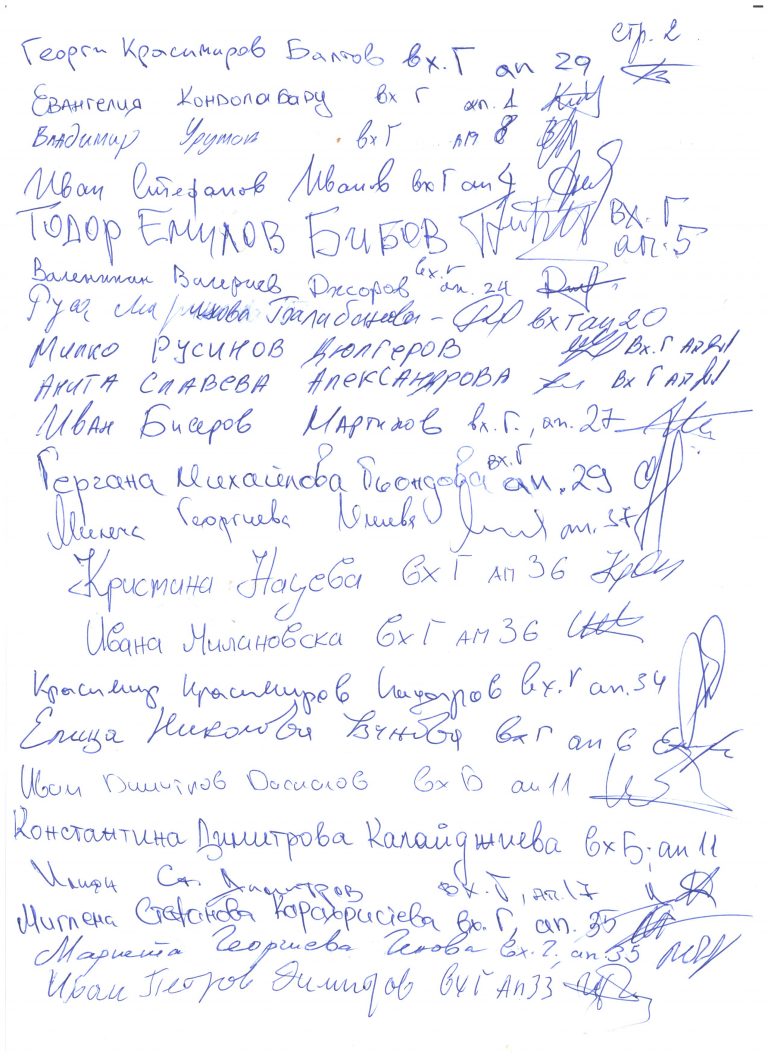 стр. 2
Георги Красимиров Балтов вх. Г ап 29
Евангелия вх Г ап. 1
Владимир Урумов вх Г ап 8
Иван Стефанов Иванов вх Г ап 4
ТОДОР ЕМИЛОВ БИБОВ ВХ. Г
ап. 5
Валентин Валериев вх. Г ап. 24
Руса Балабанова вх Г ап 20
Милко РУСИНОВ ДЮЛГЕРОВ Вх. Г
АНИТА СЛАВЕВА АЛЕКСАНДРОВА Вх Г
Иван Бисеров Мартинов вх. Г., ап. 27
Гергана Михайлова вх. Г ап. 29
Георгиева ап. 37
Кристина Нацева вх Г ап 36
Ивана Милановска вх Г ап 36
Красимир Красимиров вх. Г ап. 34
Елица Николова вх Г ап 6
Иван Димитров вх Б ап 11
Константина Димитрова Калайджиева вх Б; ап 11
Ст. Димитров вх. Г, ап. 17
Миглена Стефанова вх. Г, ап. 35
Мариета Георгиева вх. Г, ап. 35
Иван Петров вх Г ап 33